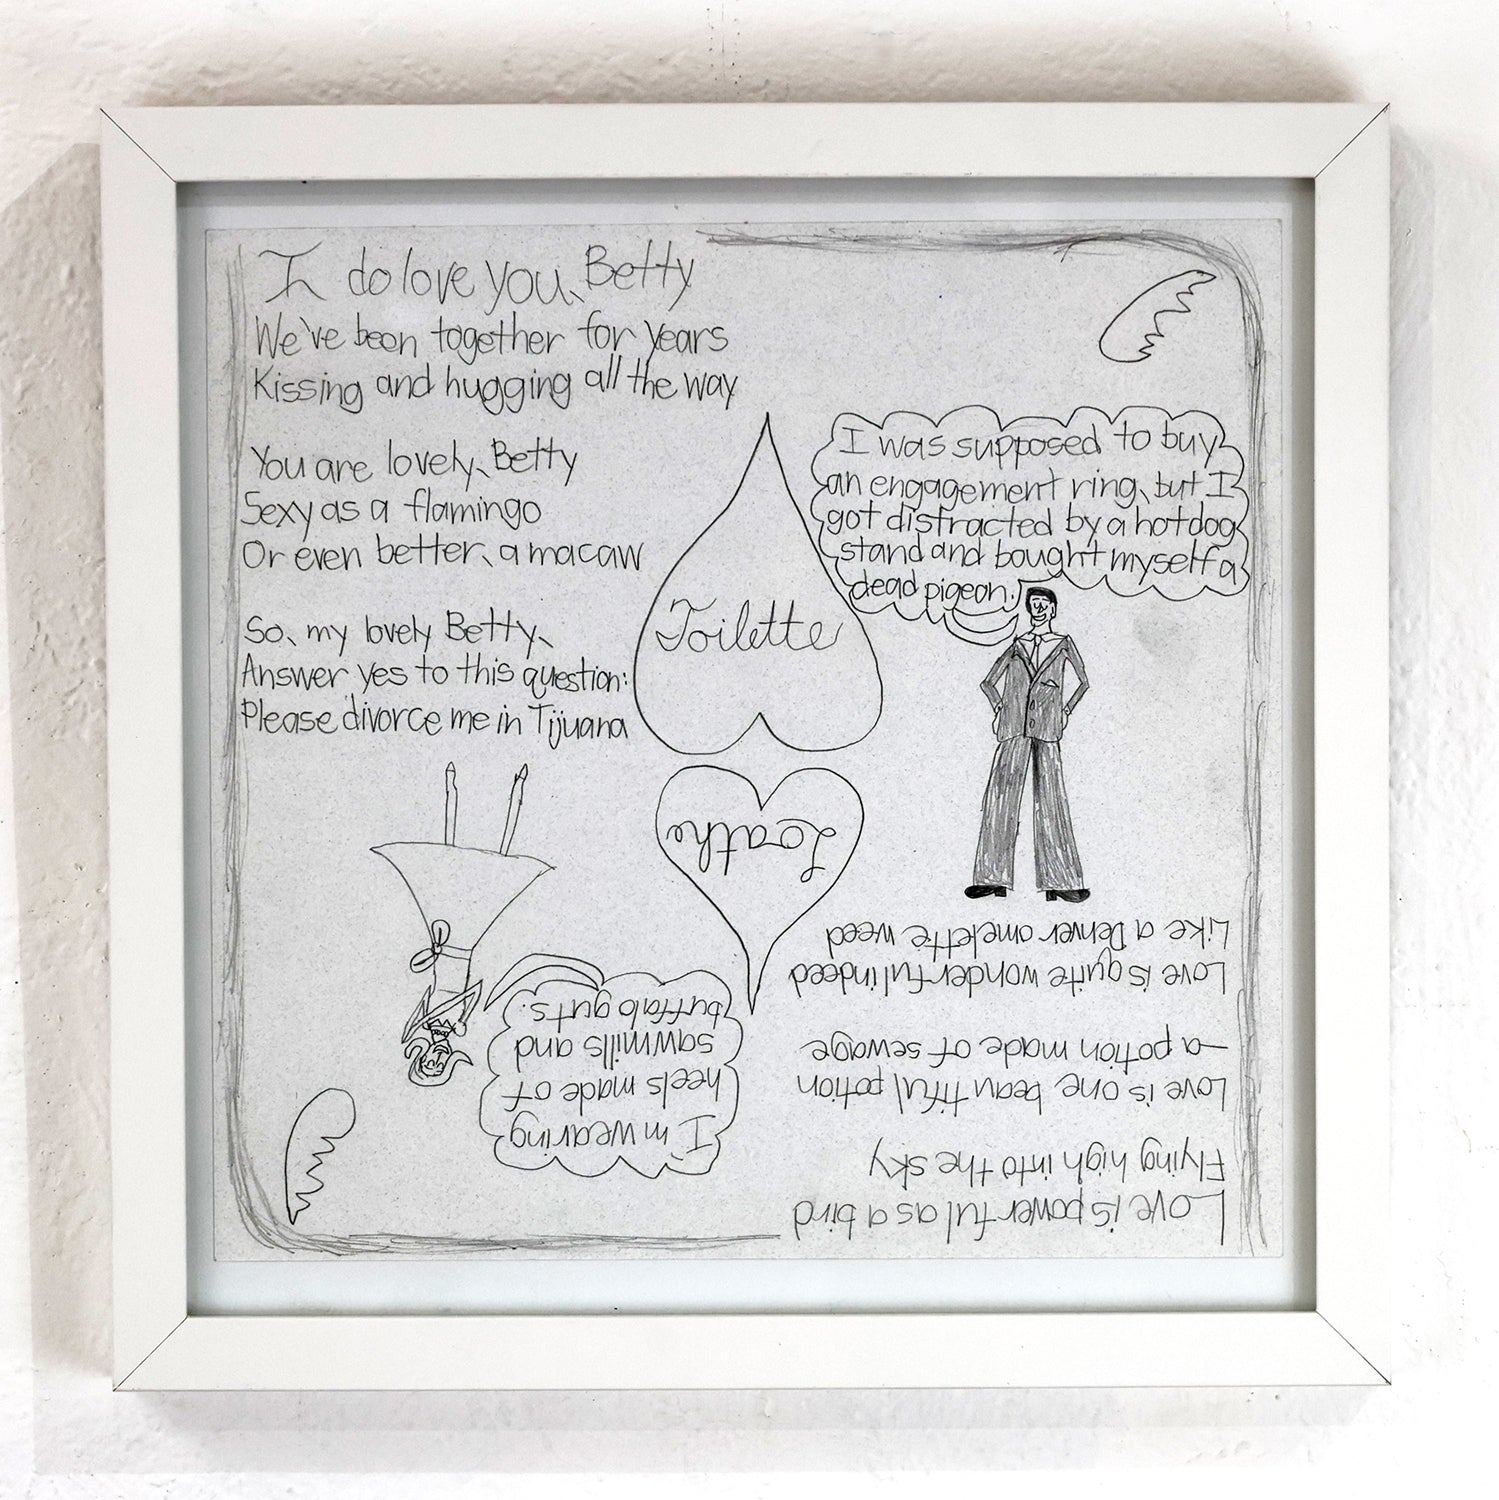 I do love you, Betty
We've been together for years
Kissing and hugging all the way
You are lovely, Betty
Sexy as a flamingo
Or even better, a macaw
So, my lovely Betty,
Answer yes to this question:
Please divorce me in Tijuana
Toilette
I was supposed to buy
an engagement ring, but I
got distracted by a hotdog
stand and bought myself a
dead pigeon.
Loathe
Love is powerful as a bird
Flying high into the sky
Love is one beautiful potion
—a potion made of sewage
Love is quite wonderful indeed
Like a Denver omelette weed
I'm wearing
heels made of
sawmills and
buffalo guts.